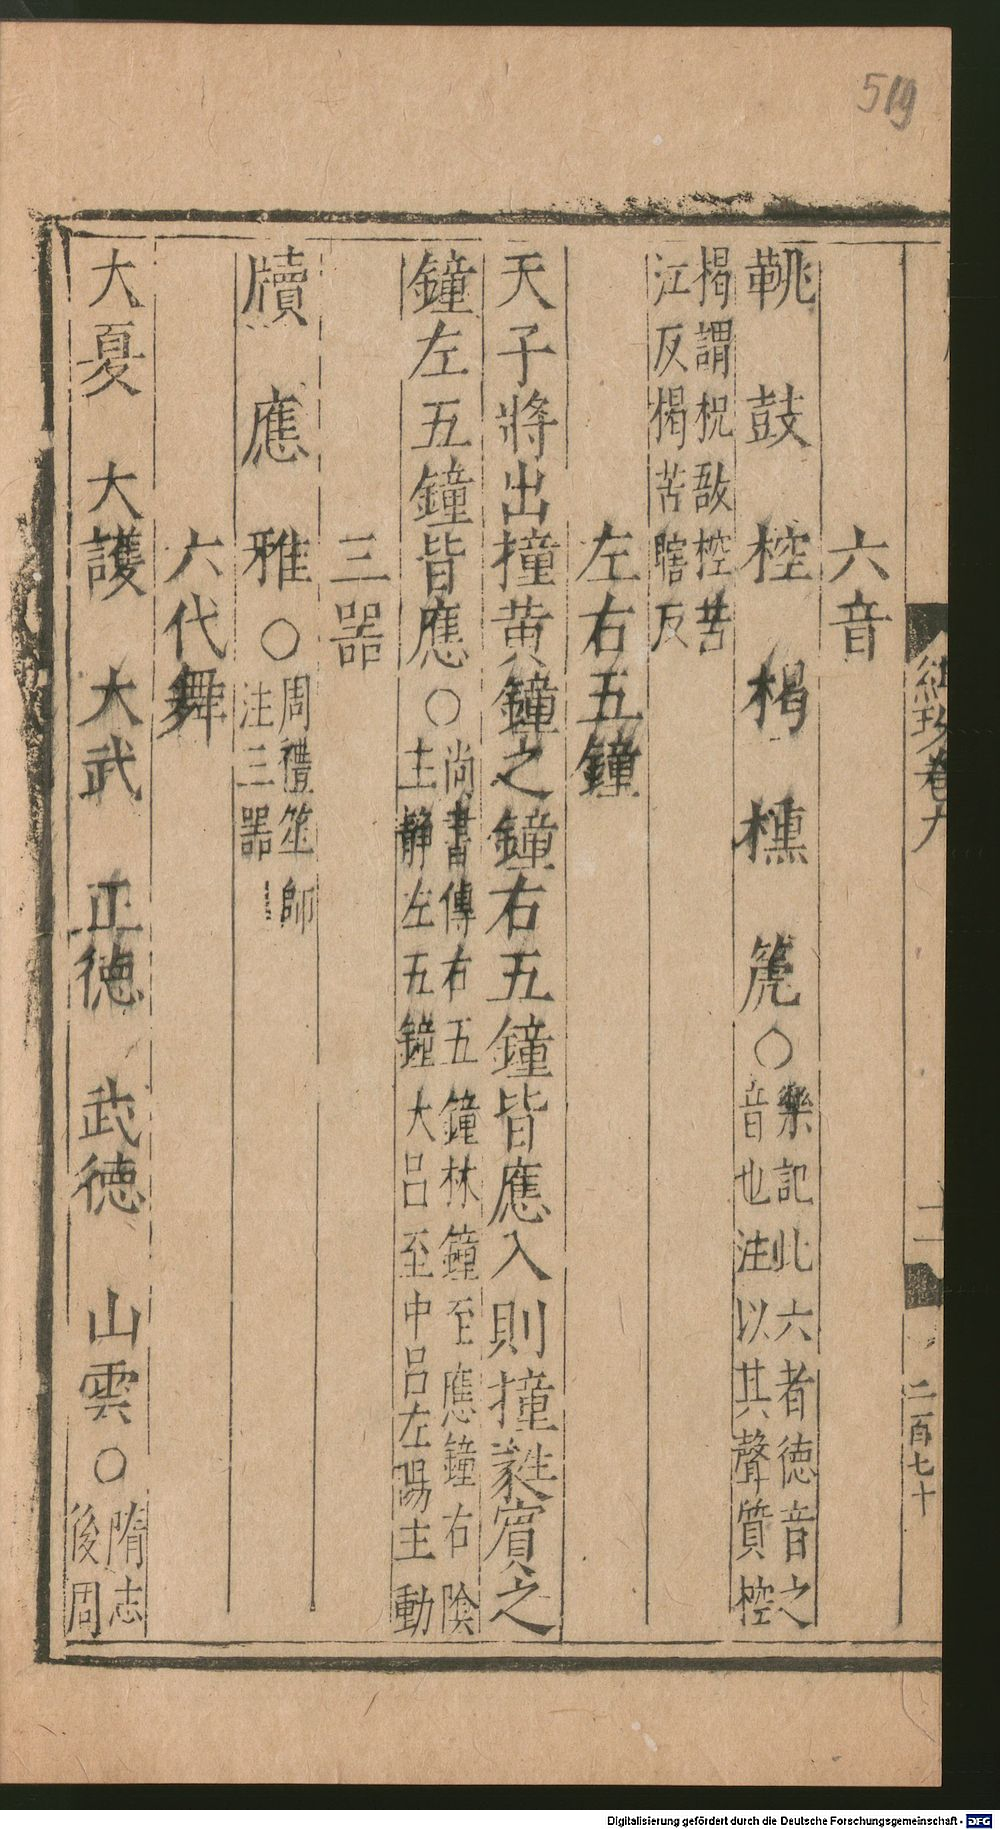 519
紺珠卷九
二百七十
六音
鞉　鼓　椌　楬　櫄　箎○樂記此六者德音之
音也注以其聲質椌
楬謂柷敔椌苦
江反楬苦瞎反
左右五鐘
天子將出撞黃鐘之鐘右五鐘皆應入則撞蕤賓之
鐘左五鐘皆應○尚書傳右五鐘林鐘至應鐘右陰
主靜左五鐘大呂至中呂左陽主動
三器
牘　應　雅○周禮笙師
注三器
六代舞
大夏　大護　大武　正德　武德　山雲○隋志
後周
Digitalisierung gefördert durch die Deutsche Forschungsgemeinschaft - DFG